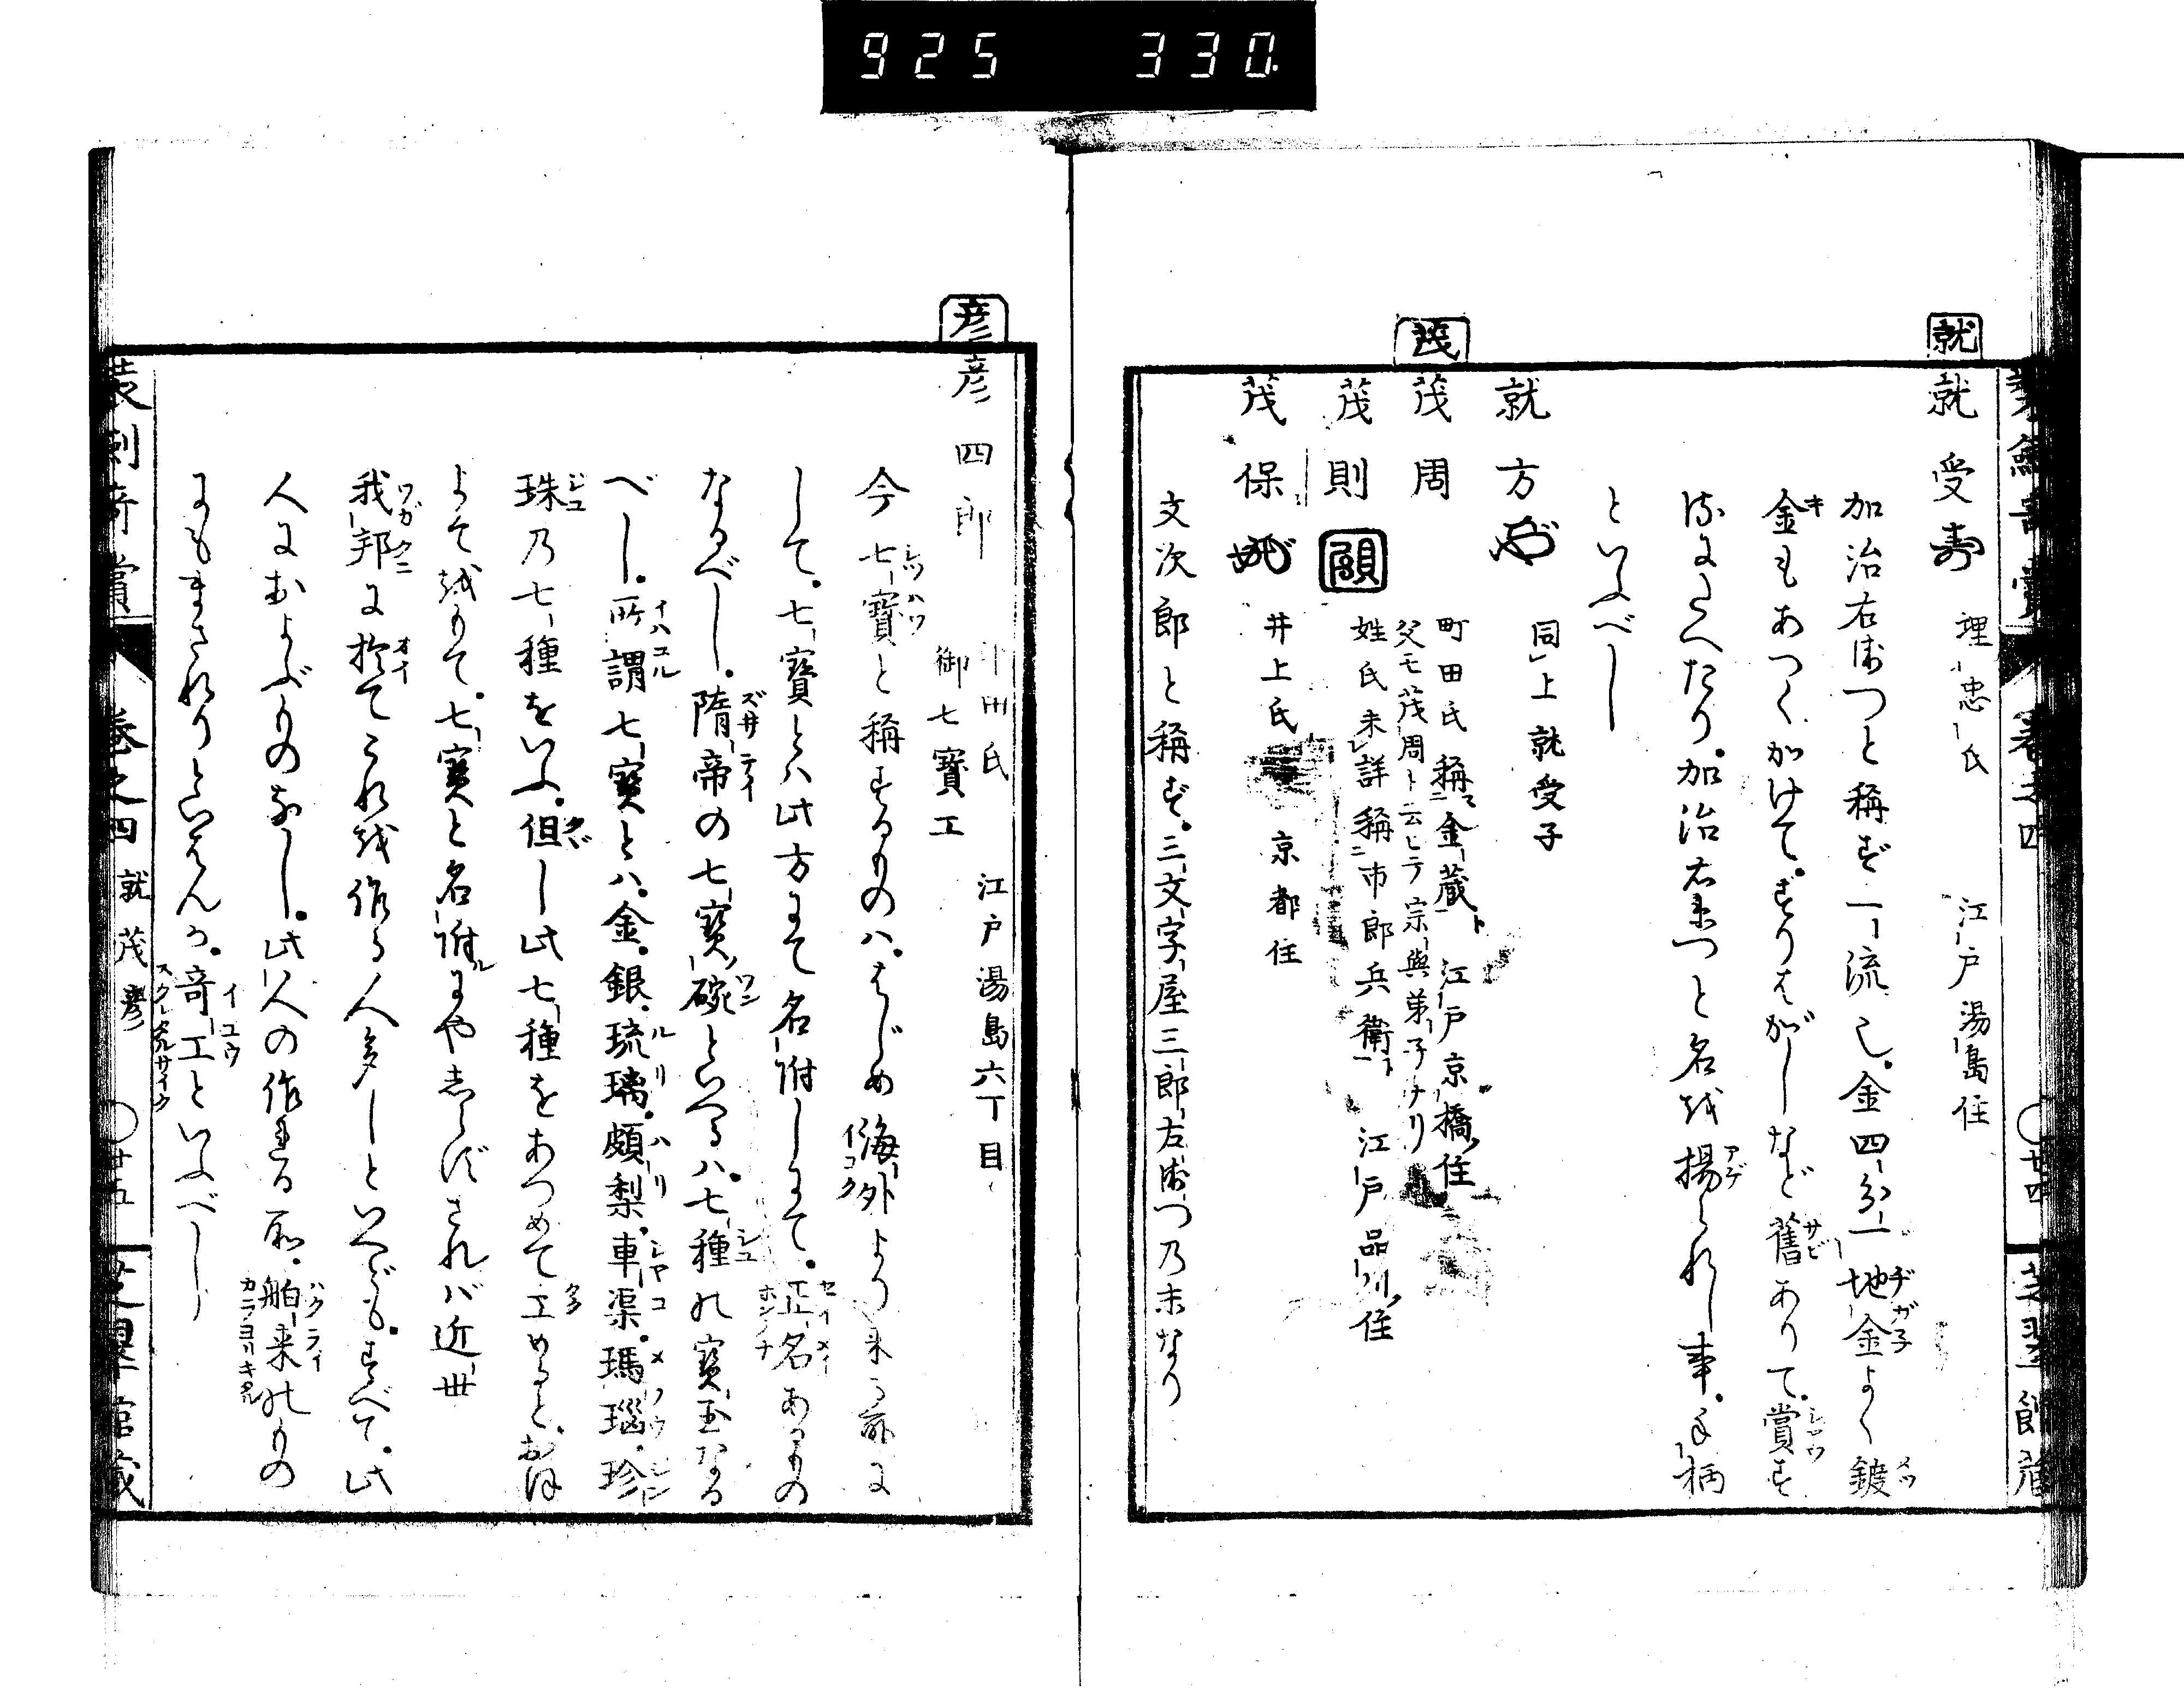 925 330
就
就受寿 埋忠氏 江戸湯島住
加治右衛つと称ず一流也。金四分一地金よく鍍
金もあつくかけて。すりはがしなど舊ありて。賞す
加治右衛つと名を揚られし事。手柄
といふべし
就方 同上就受子
茂
茂周 町田氏称金蔵 江戸京橋住
父モ茂周ト云ヒテ宗與弟子ナリ
茂則 姓氏未詳称市郎兵衛 江戸品川住
茂保 井上氏 京都住
文次郎と称ず。三文字屋三郎左衛つ乃末なり
彦
彦四郎 平田氏 江戸湯島六丁目
御七寶工
今七寶と称するものハ。はじめ海外より来る
して。七寶とハ此方にて名附しにて。正名あるもの
なるべし。隋帝の七寶碗といへるハ。七種の寶玉なる
べし。所謂七寶とハ。金。銀。琉璃。頗梨。車渠。瑪瑙。珍
珠乃七種をいふ。但し此七種をあつめて工めると。おほ
よそをもて。七寶と名附るにやあらずされバ近世
我邦に於てこれを作る人多しといへども。すべて。此
人におよぶものなし。此人の作れる所。舶来のもの
にもまされりといはんか。奇工といふべし
装剣奇賞 巻之四 就 茂 彦 ○廿五